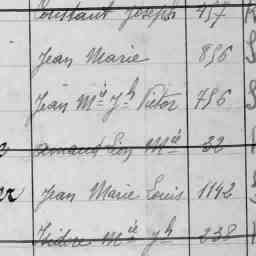 Constant Joseph 457
Jean Marie 896
Jean Mie Jh Victor 786
Armand Léon Mie 32
Jean Marie Louis 1142
Isidore Mie Jh 238